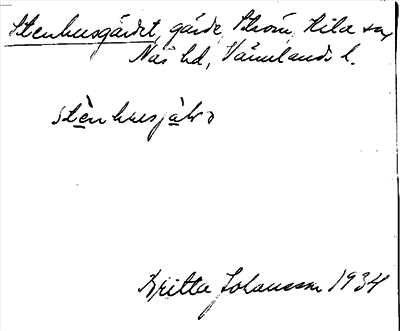 Stenhusgärdet, gärde, Ström, Kila sn,
Näs hd, Värmlands l.
stènhusjàḷṣ
Britta Johansson 1934